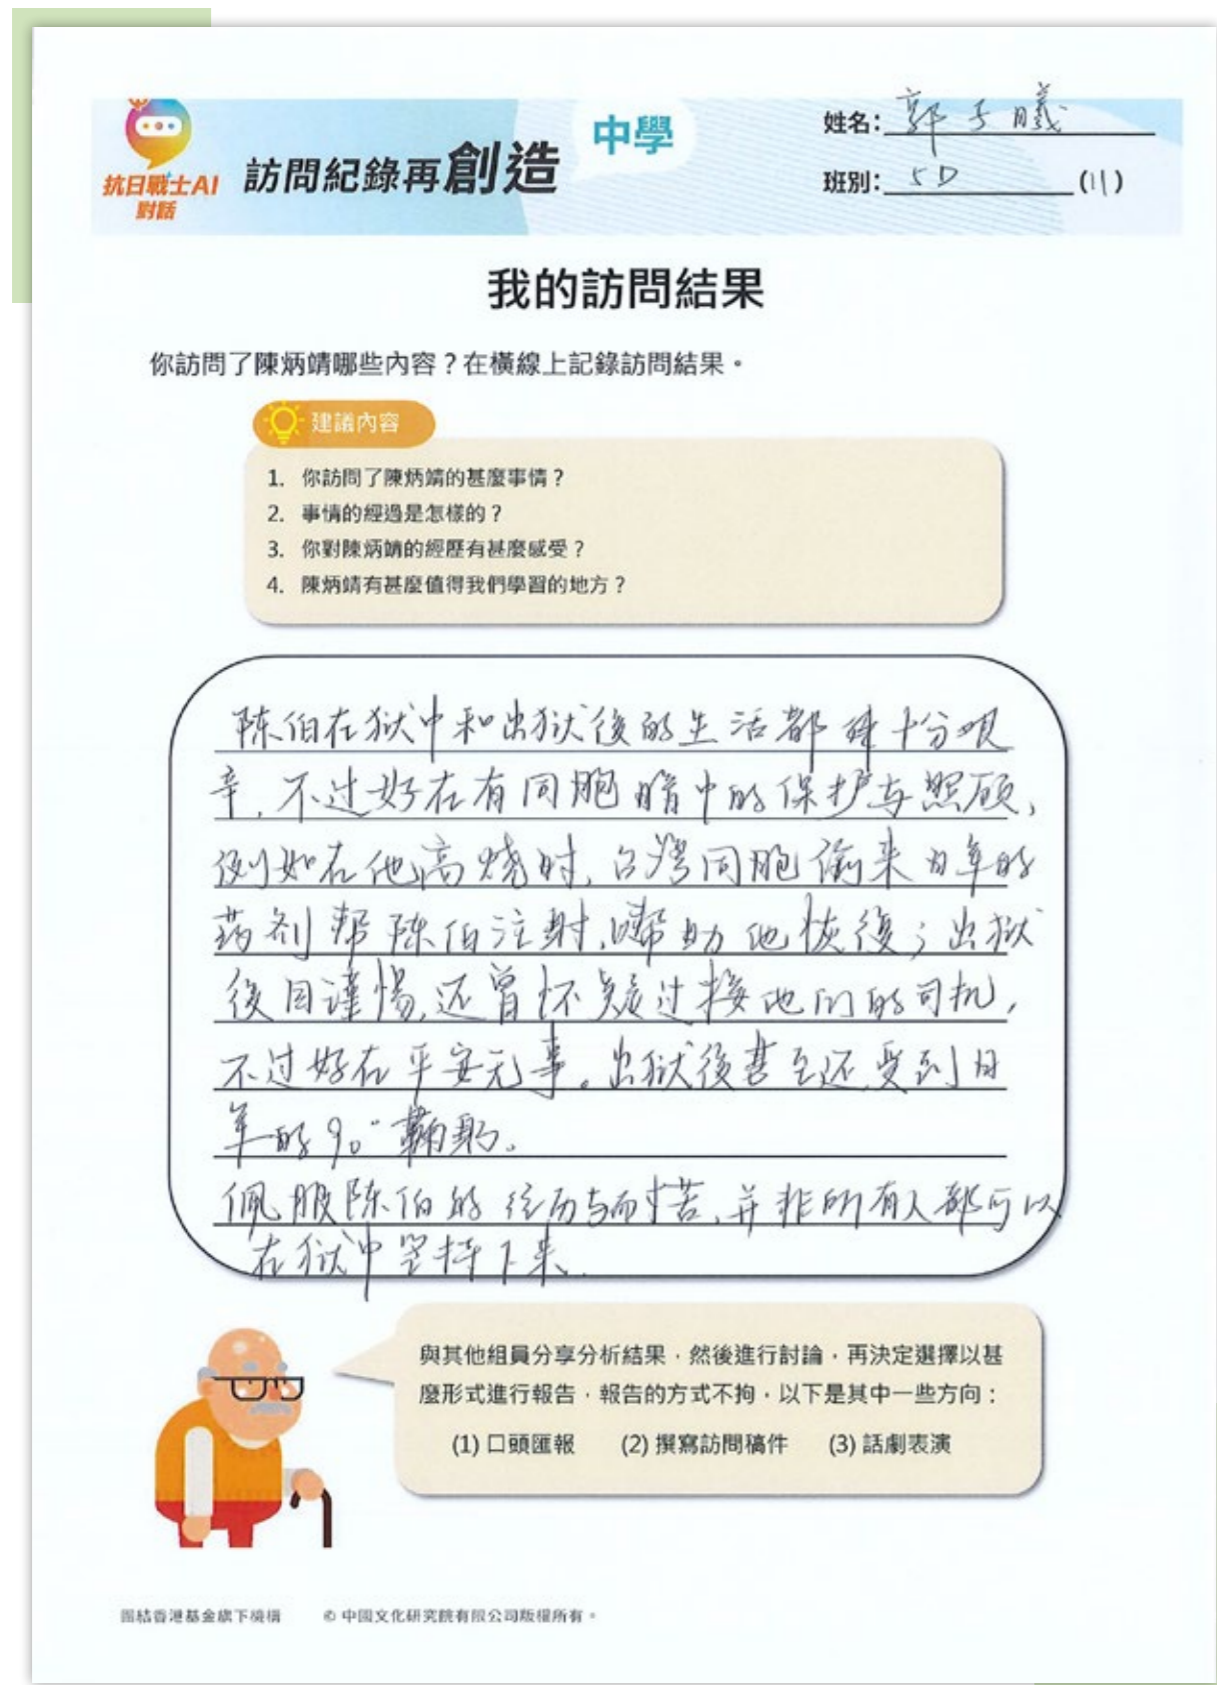 姓名：郭子曦
中學
抗日戰士AI
對話
訪問紀錄再創造
班別：5D (11)
我的訪問結果
你訪問了陳炳靖哪些內容？在橫線上記錄訪問結果。
建議內容
1. 你訪問了陳炳靖的甚麼事情？
2. 事情的經過是怎樣的？
3. 你對陳炳靖的經歷有甚麼感受？
4. 陳炳靖有甚麼值得我們學習的地方？
陈伯在狱中和出狱後的生活都十分艰
辛，不过好在有同胞暗中的保护与照顾，
例如在他高烧时，台湾同胞偷来日军的
药剂帮陈伯注射，帮助他恢復；出狱
後因谨惕，还曾怀疑过接他们的司机，
不过好在平安无事。出狱後甚至还受到日
军的90°鞠躬。
佩服陈伯的经历与耐苦，并非所有人都可以
在狱中坚持下来.
與其他組員分享分析結果，然後進行討論，再決定選擇以甚
麼形式進行報告，報告的方式不拘，以下是其中一些方向：
(1) 口頭匯報 (2) 撰寫訪問稿件 (3) 話劇表演
團結香港基金旗下機構 © 中國文化研究院有限公司版權所有。